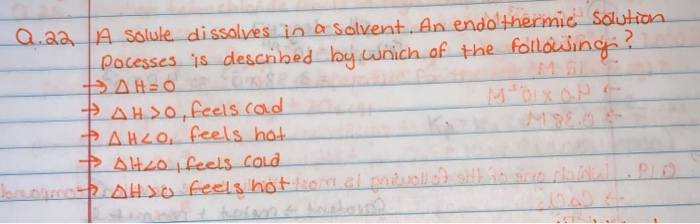 Q.22 A solute dissolves in a solvent. An endothermic solution
pocesses is described by which of the following?
→ ΔH=0
→ ΔH>0, feels cold
→ ΔH<0, feels hot
→ ΔH<0, feels cold
→ ΔH>0 feels hot